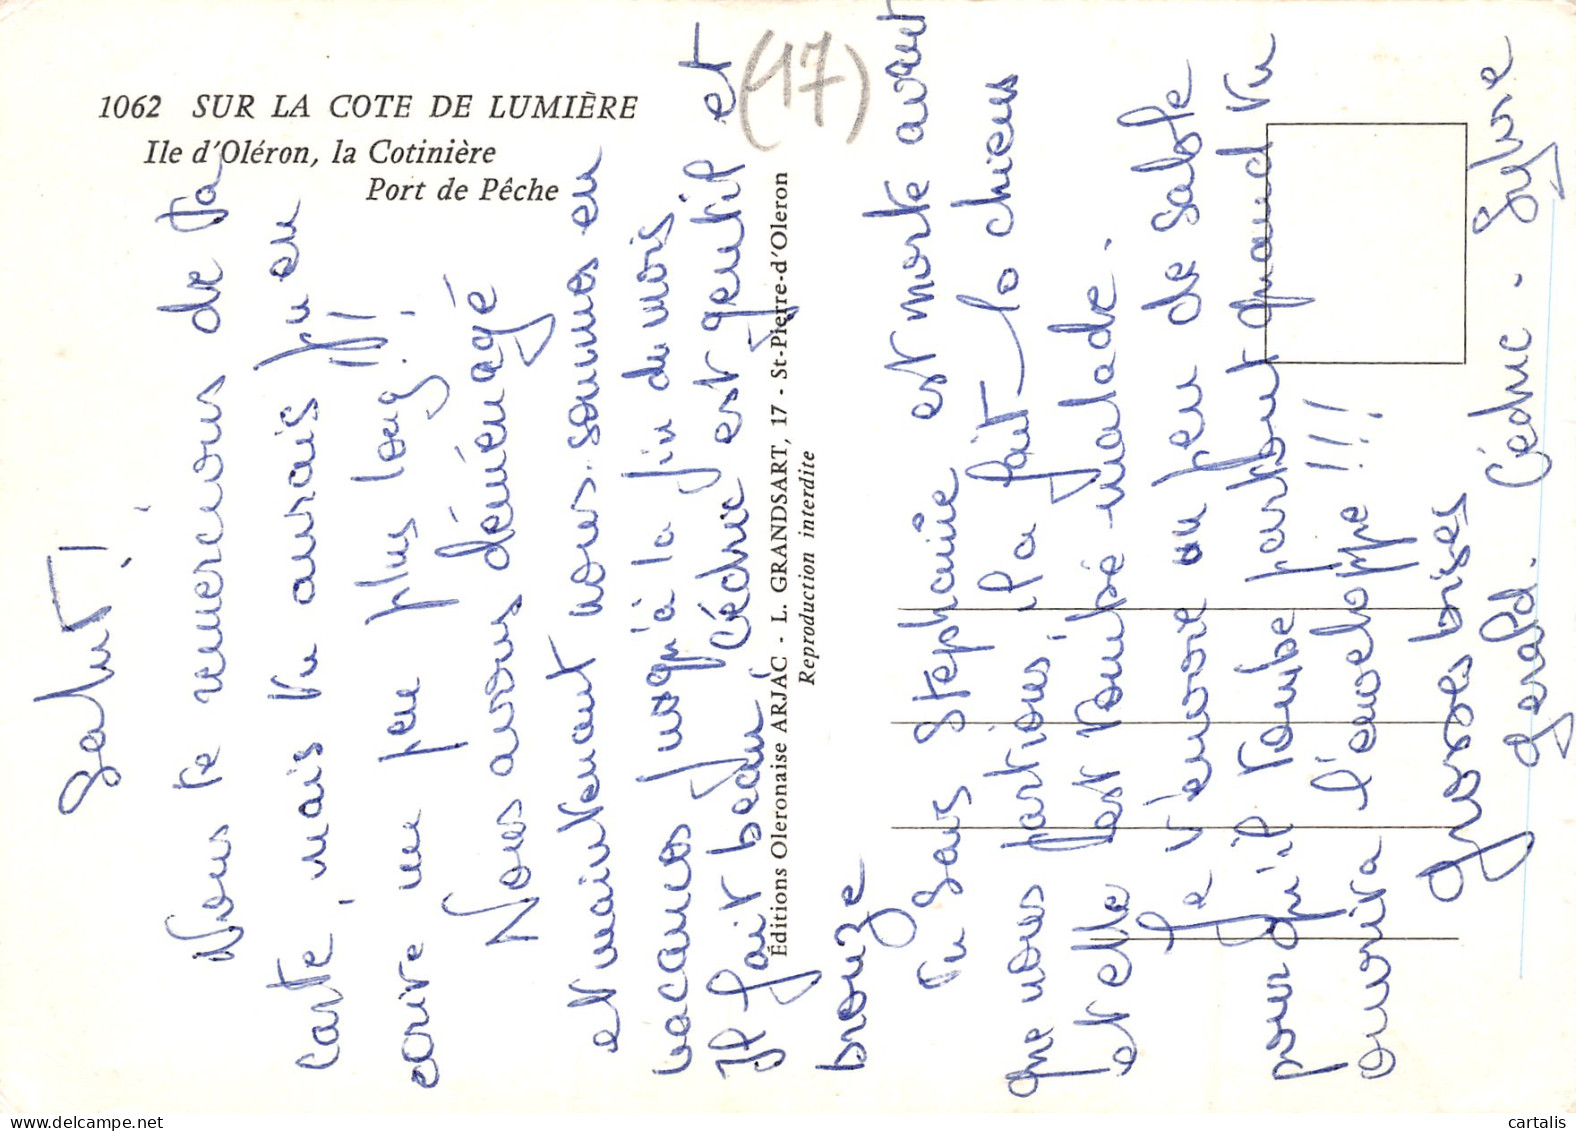 1062 SUR LA COTE DE LUMIÈRE
Ile d'Oléron, la Cotinière
Port de Pêche
(17)
Éditions Oleronaise ARJAC - L. GRANDSART, 17 - St-Pierre-d'Oleron
Reproduction interdite
Salut !
Nous te remercions de ta
carte, mais tu aurais pu en
écrire un peu plus long !!!
Nous avons déménagé
et maintenant nous sommes en
vacances jusqu'à la fin du mois
Il fait beau, Cédric est gentil et
bronze
Tu sais Stephanie est morte avant
que nous partions, il a fait 10 chiens
et elle est tombé malade.
Je t'envoie un peu de sable
pour qu'il tombe partout quand tu
ouvrira l'enveloppe !!!
Grosses bises
Gerald. Cédric - Sylvie
147064
cartalis